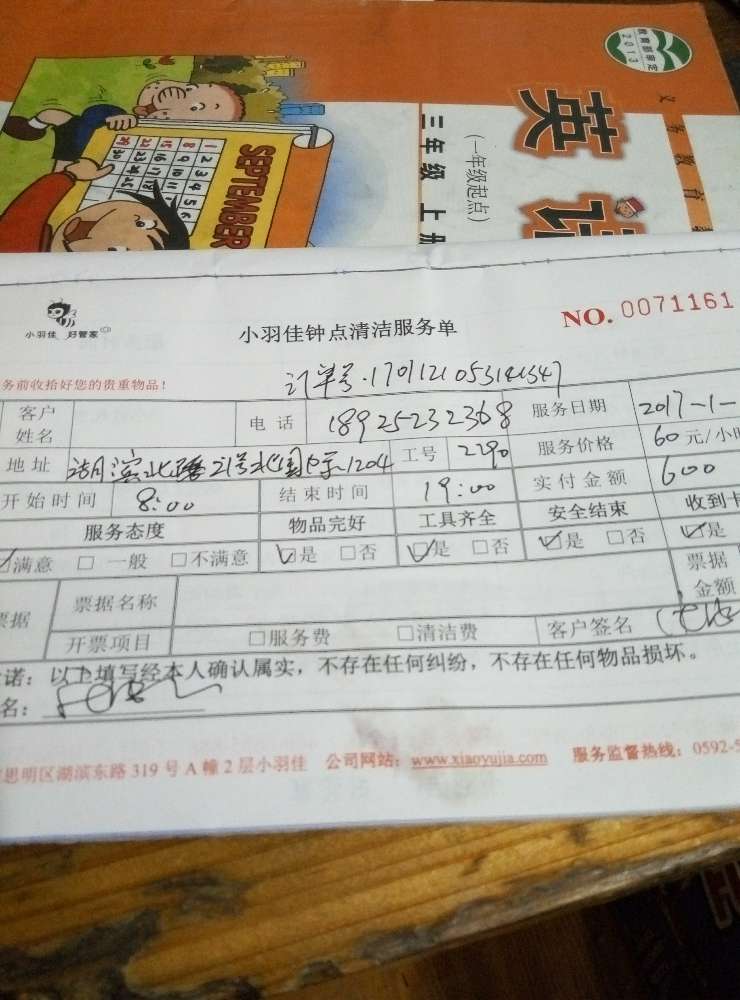 教育部审定
2013
义务教育
英语
(一年级起点)
三年级 上册
SEPTEMBER
小羽佳 好管家
小羽佳钟点清洁服务单
NO. 0071161
务前收拾好您的贵重物品!
订单号·170112105314
客户姓名
电话 18925232368
服务日期 2017-1-
地址 湖滨北路
1204
工号 2290
服务价格 60元/小
开始时间 8:00
结束时间 19:00
实付金额 600
服务态度 物品完好 工具齐全 安全结束 收到
满意 一般 不满意 是 否 是 否 是 否 是
票据 票据名称
票据金额
开票项目 服务费 清洁费 客户签名
诺:以上填写经本人确认属实,不存在任何纠纷,不存在任何物品损坏。
名:
思明区湖滨东路 319 号 A 幢 2 层小羽佳 公司网站:www.xiaoyujia.com 服务监督热线:0592-5